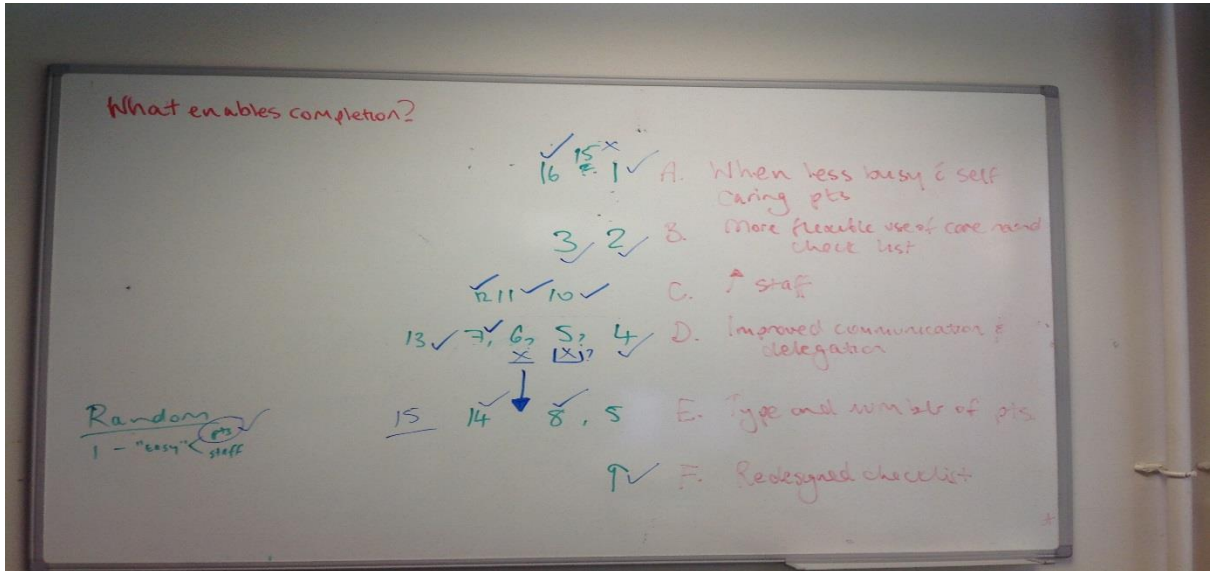 What enables completion?
16 ✓ 15 × 1 ✓ A. When less busy & self
caring pts
3 ✓ 2 ✓ B. More flexible use of care round
check list
12 ✓ 11 ✓ 10 ✓ C. ↑ staff
13 ✓ 7, ✓ 6, 5, 4 ✓ D. Improved communication &
× [×]? delegation
15 14 ✓ 8, ✓ 5 E. Type and number of pts.
Random
1 - "easy" < pts ✓
staff
9 ✓ F. Redesigned checklist